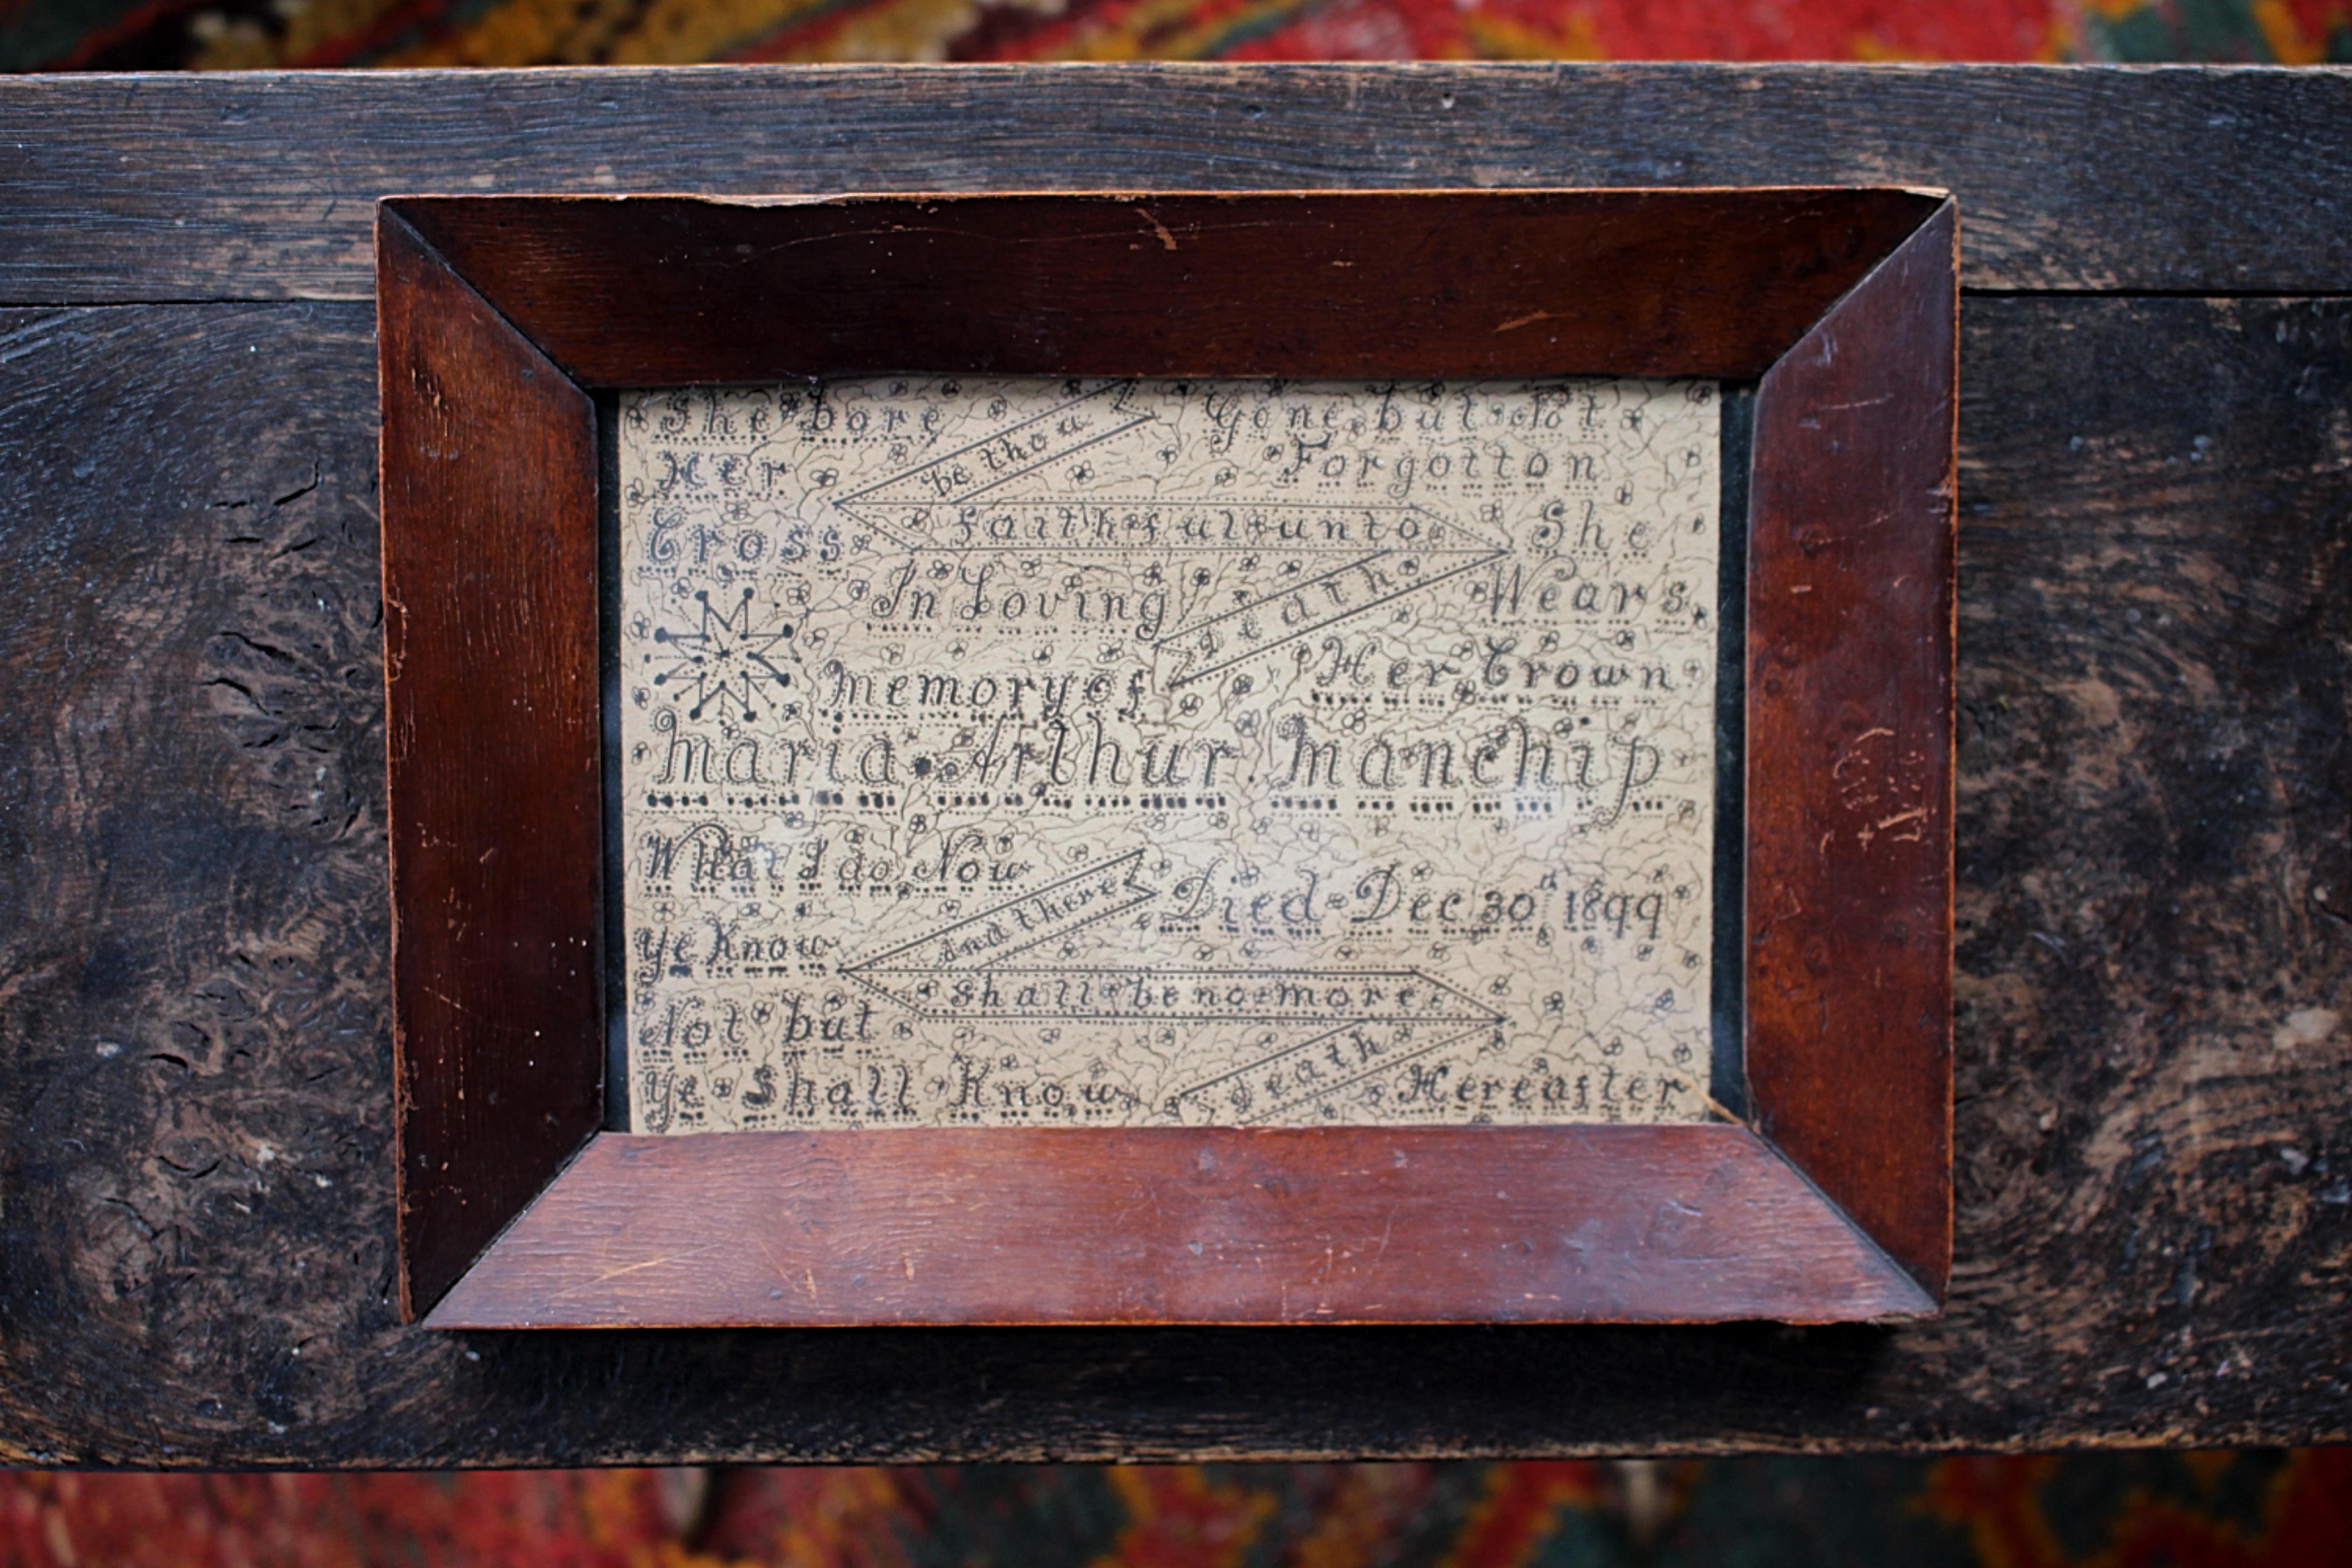 She bore
Her
Cross
be thou
faithful unto
death
Gone but Not
Forgotton
She
Wears
Her Crown
In Loving
memory of
Maria Arthur Manchip
Died Dec 30th 1899
What I do Now
Ye Know
Not but
Ye Shall Know
Hereafter
And there
shall be no more
death